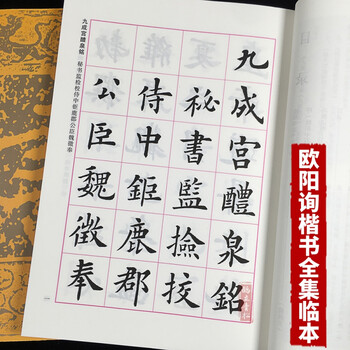 九成宫醴泉铭
秘书监检校侍中钜鹿郡公臣魏徵奉
九成宮醴泉銘
祕書監撿挍
侍中鉅鹿郡
公臣魏徵奉
欧阳询楷书全集临本